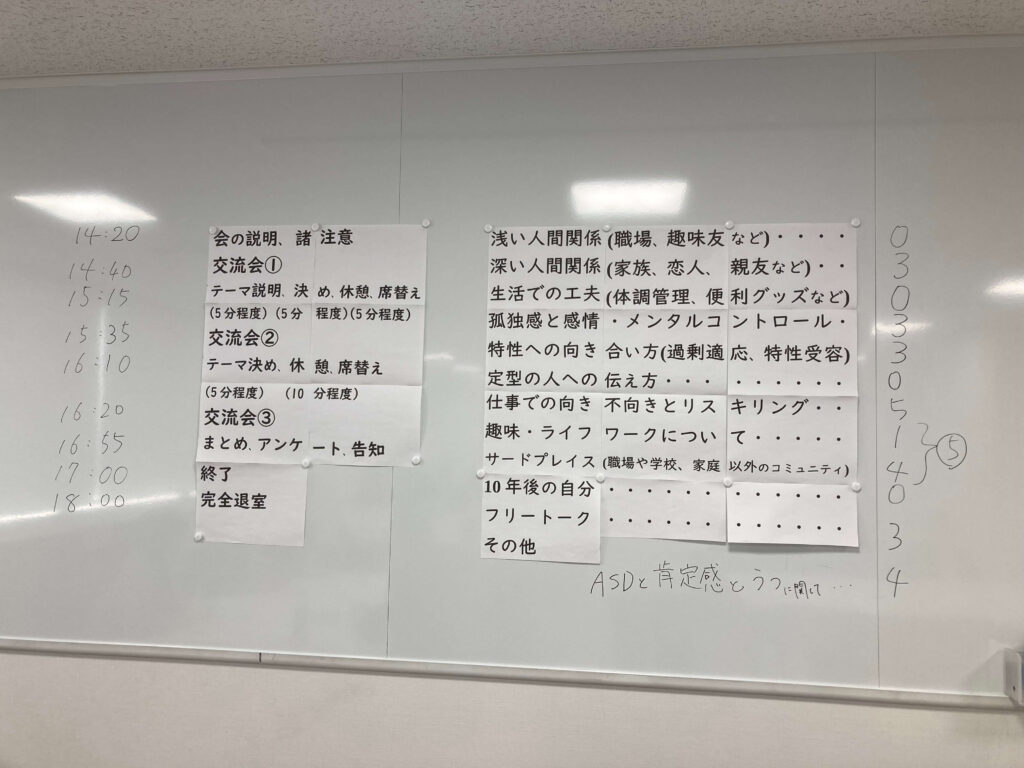 14:20
14:40
15:15
15:35
16:10
16:20
16:55
17:00
18:00
会の説明、諸注意
交流会①
テーマ説明、決め、休憩、席替え
(5分程度)(5分程度)(5分程度)
交流会②
テーマ決め、休憩、席替え
(5分程度) (10分程度)
交流会③
まとめ、アンケート、告知
終了
完全退室
浅い人間関係(職場、趣味友など)・・・・ 0
深い人間関係(家族、恋人、親友など)・・ 3
生活での工夫(体調管理、便利グッズなど) 0
孤独感と感情・メンタルコントロール・ 3
特性への向き合い方(過剰適応、特性受容) 3
定型の人への伝え方・・・・・・・・・ 0
仕事での向き不向きとリスキリング・・ 5
趣味・ライフワークについて・・・・・ 1
サードプレイス(職場や学校、家庭以外のコミュニティ) 4
⑤
10年後の自分・・・・・・・・・・・・ 0
フリートーク・・・・・・・・・・・・ 3
その他 4
ASDと肯定感とうつに関して…